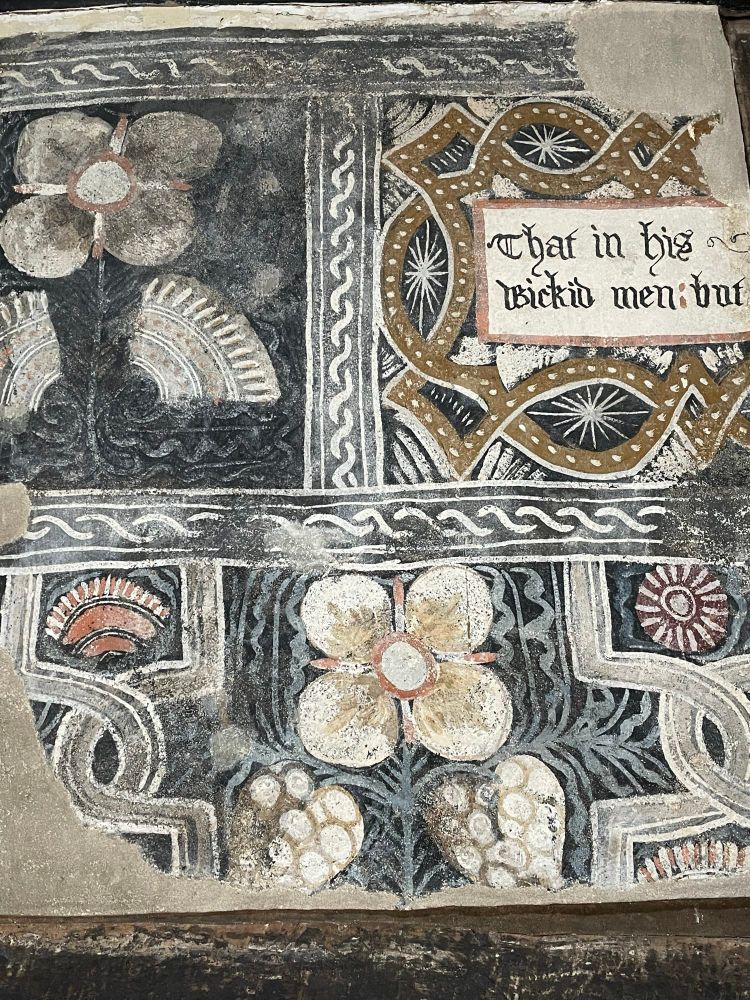 That in his
wickid men: but